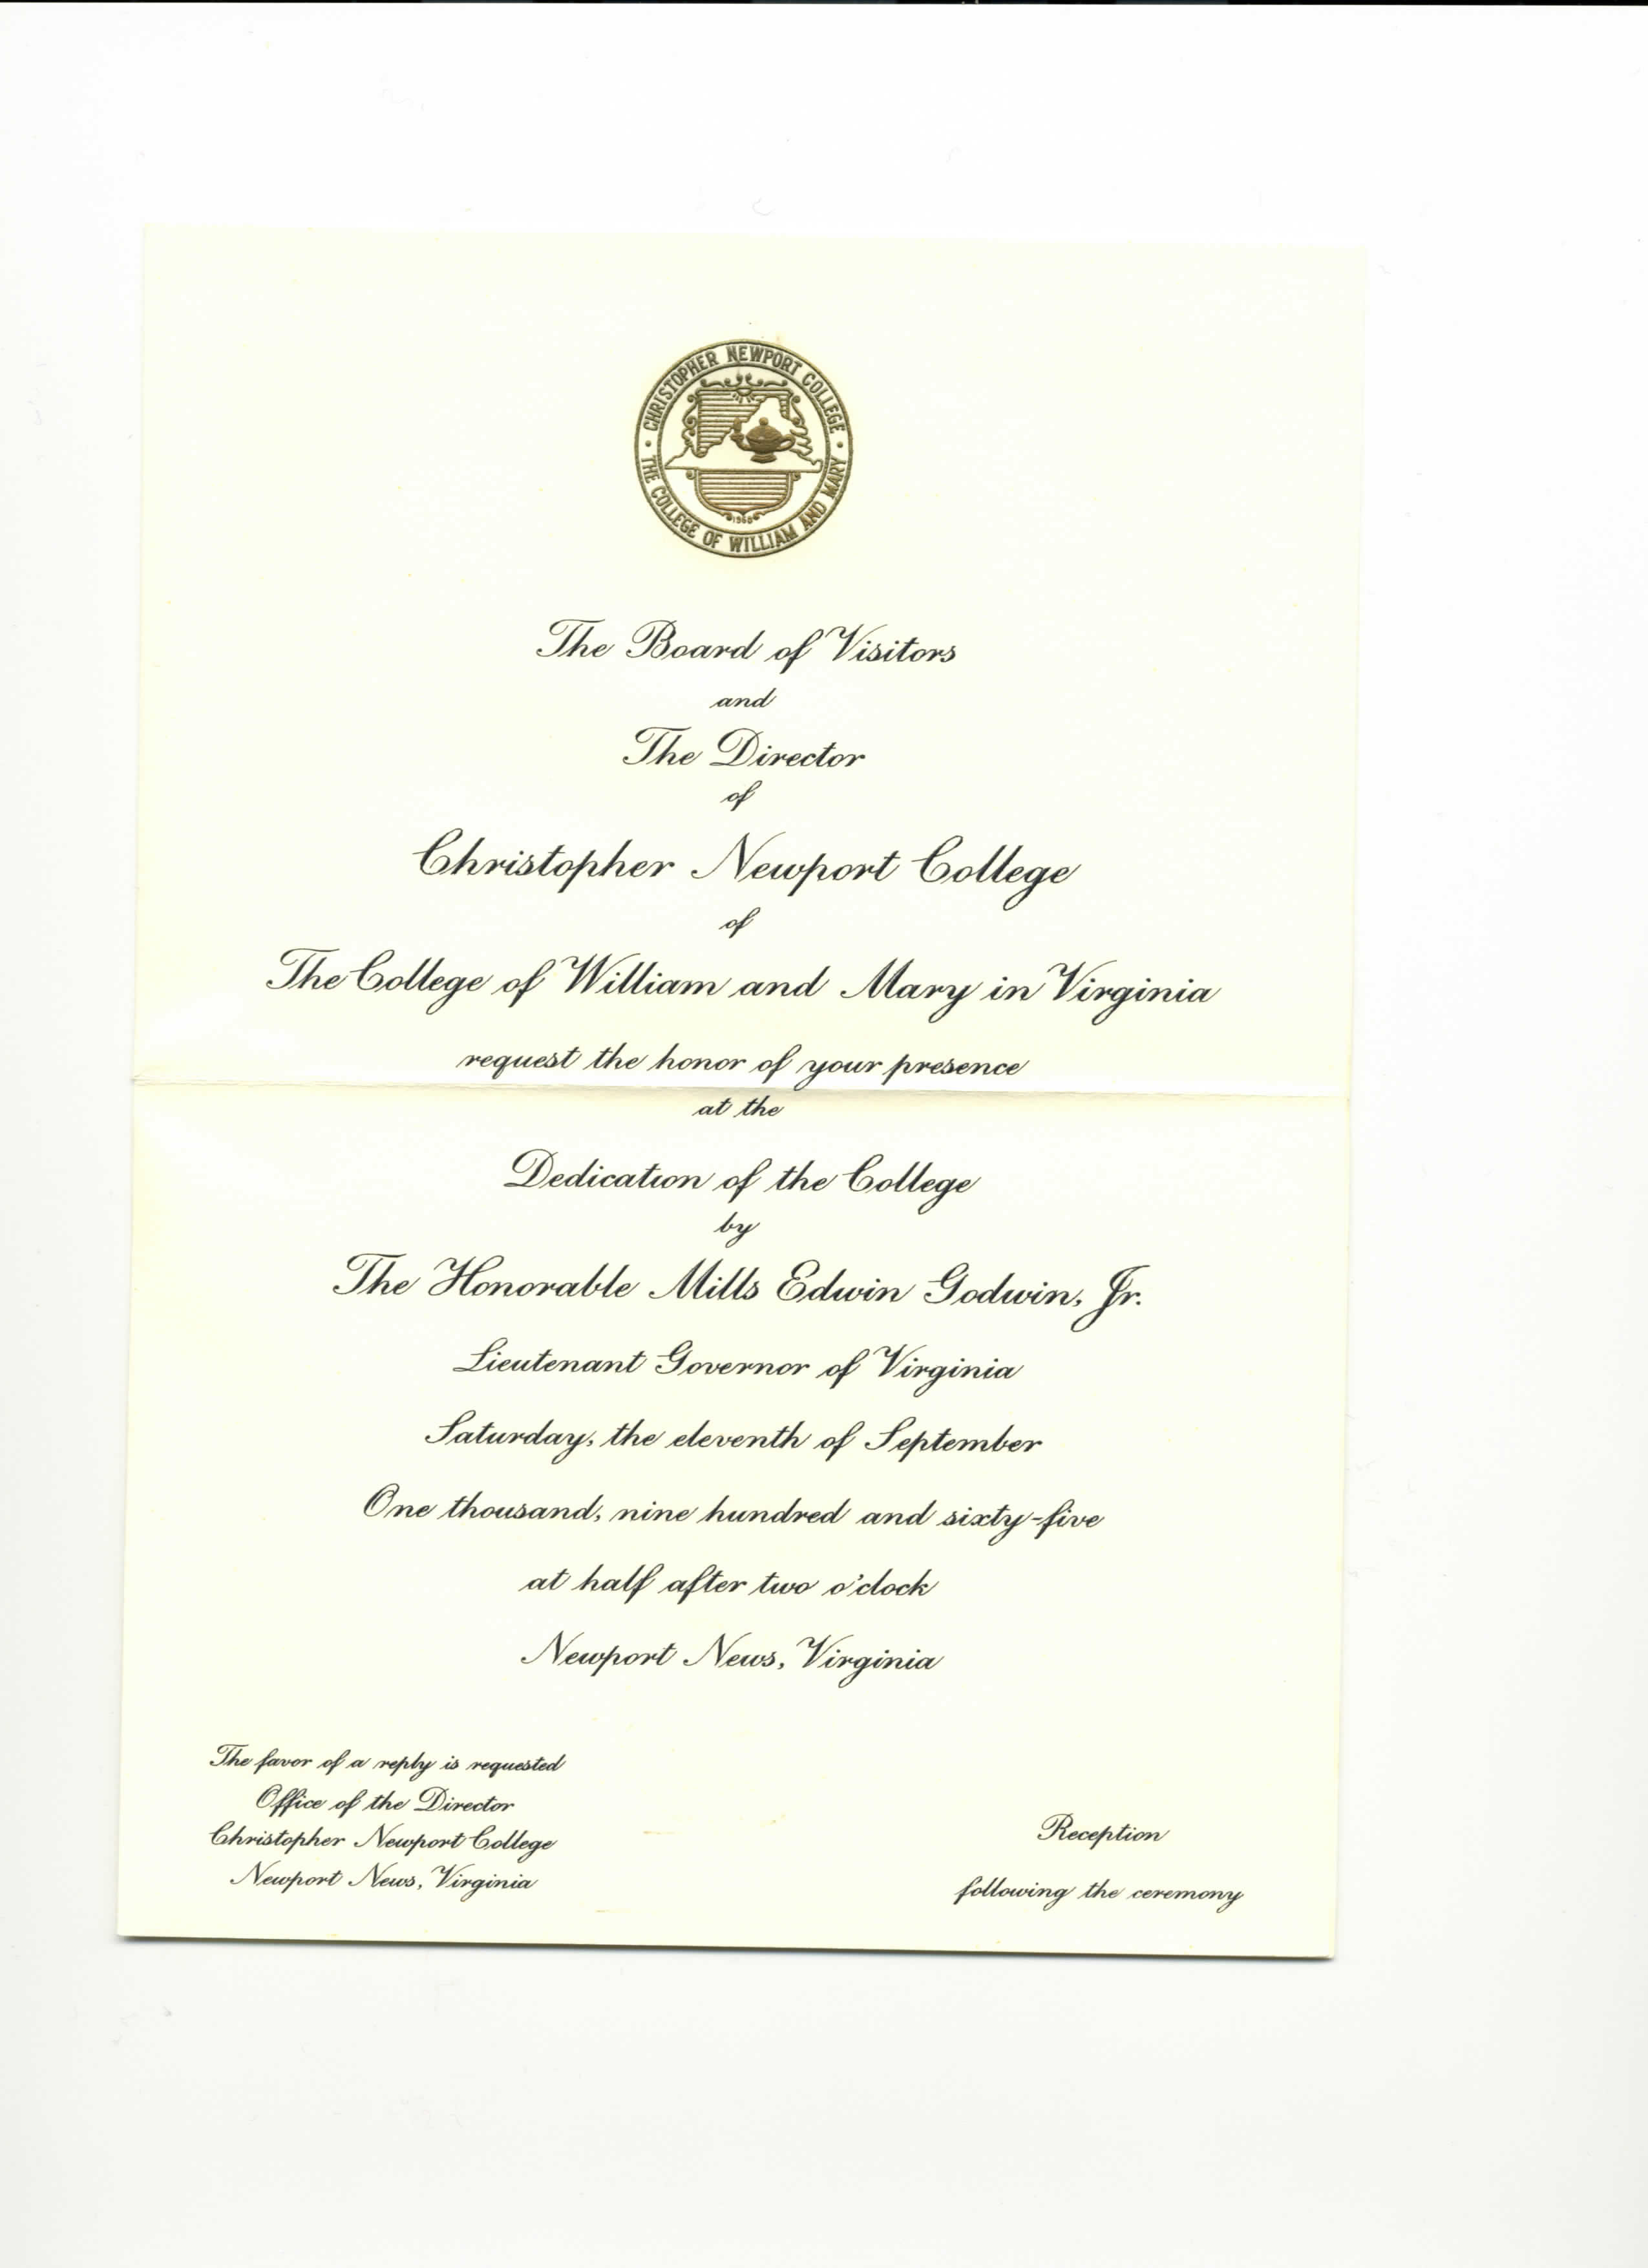 CHRISTOPHER NEWPORT COLLEGE
THE COLLEGE OF WILLIAM AND MARY
1960
The Board of Visitors
and
The Director
of
Christopher Newport College
of
The College of William and Mary in Virginia
request the honor of your presence
at the
Dedication of the College
by
The Honorable Mills Edwin Godwin, Jr.
Lieutenant Governor of Virginia
Saturday, the eleventh of September
One thousand, nine hundred and sixty-five
at half after two o'clock
Newport News, Virginia
The favor of a reply is requested
Office of the Director
Christopher Newport College
Newport News, Virginia
Reception
following the ceremony